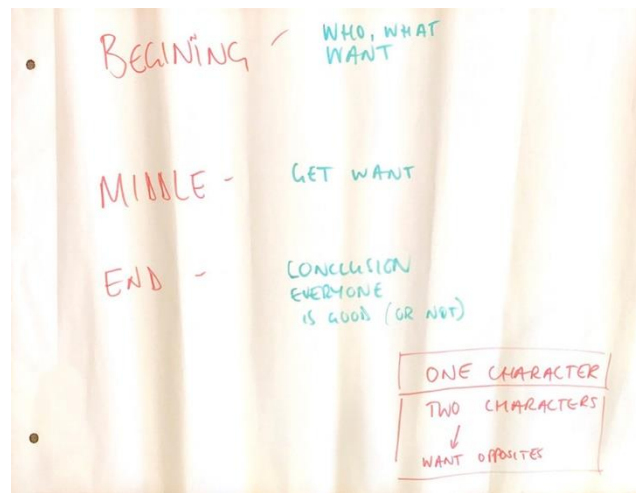 BEGINING - WHO, WHAT
WANT
MIDDLE - GET WANT
END - CONCLUSION
EVERYONE
IS GOOD (OR NOT)
ONE CHARACTER
TWO CHARACTERS
↓
WANT OPPOSITES